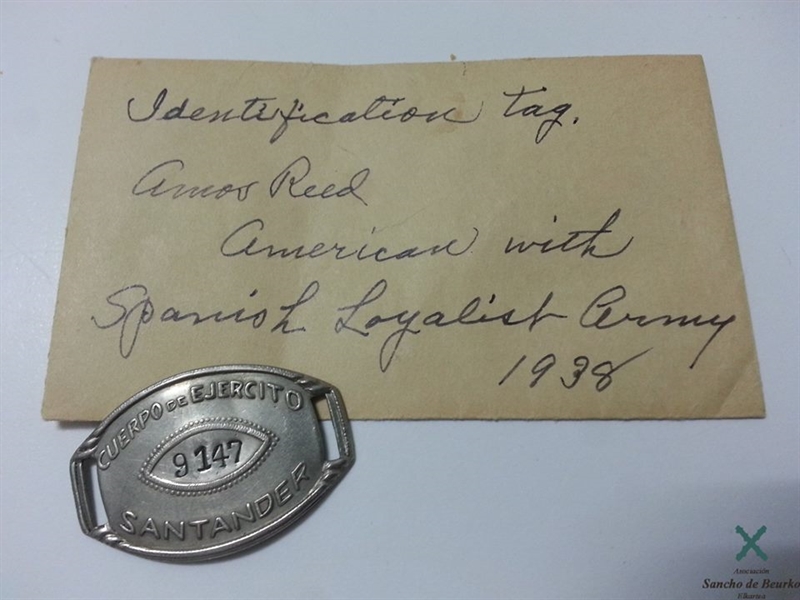 Identification tag.
Amos Reed
American with
Spanish Loyalist Army
1938
CUERPO DE EJERCITO
9147
SANTANDER
Asociación
Sancho de Beurko
Elkartea